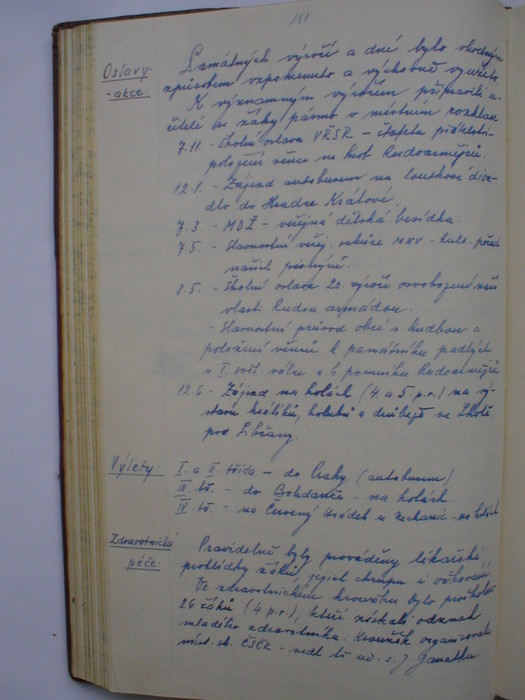 181
Oslavy
- akce:
Památných výročí a dní bylo vhodným
způsobem vzpomenuto a výchovně využito.
K významným výročím připravili u-
čitelé se žáky pásmo v místním rozhlase
7.11. - Školní oslava VŘSR - štafeta přátelství -
položení věnce na hrob Rudoarmějců.
12.1. - Zájezd autobusem na loutkové diva-
dlo do Hradce Králové.
7.3. - MDŽ - veřejná dětská besídka.
7.5. - Slavnostní veřej. schůze MNV - kult. pořad
našich pionýrů.
8.5. - Školní oslava 20. výročí osvobození naší
vlasti Rudou armádou.
- Slavnostní průvod obcí s hudbou a
položení věnců k památníku padlých
v I. svět. válce a k pomníku Rudoarmějců
12.6. - Zájezd na kolách (4. a 5. p.r.) na vý-
stavu králíků, holubů a drůbeže ve Lhotě
pod Libčany.
Výlety:
I. a II. třída - do Prahy (autobusem)
III. tř. - do Bohdanče - na kolách.
IV. tř. - na Červený Hrádek u Nechanic - na kolách
Zdravotnická
péče:
Pravidelně byly prováděny lékařské
prohlídky žáků, jejich chrupu i očkování.
Ve zdravotnickém kroužku bylo proškoleno
26 žáků (4 p.r.), kteří získali odznak
mladého zdravotníka. Kroužek organizovala
míst. sk. ČSČK - vedl tř. uč. s. J.